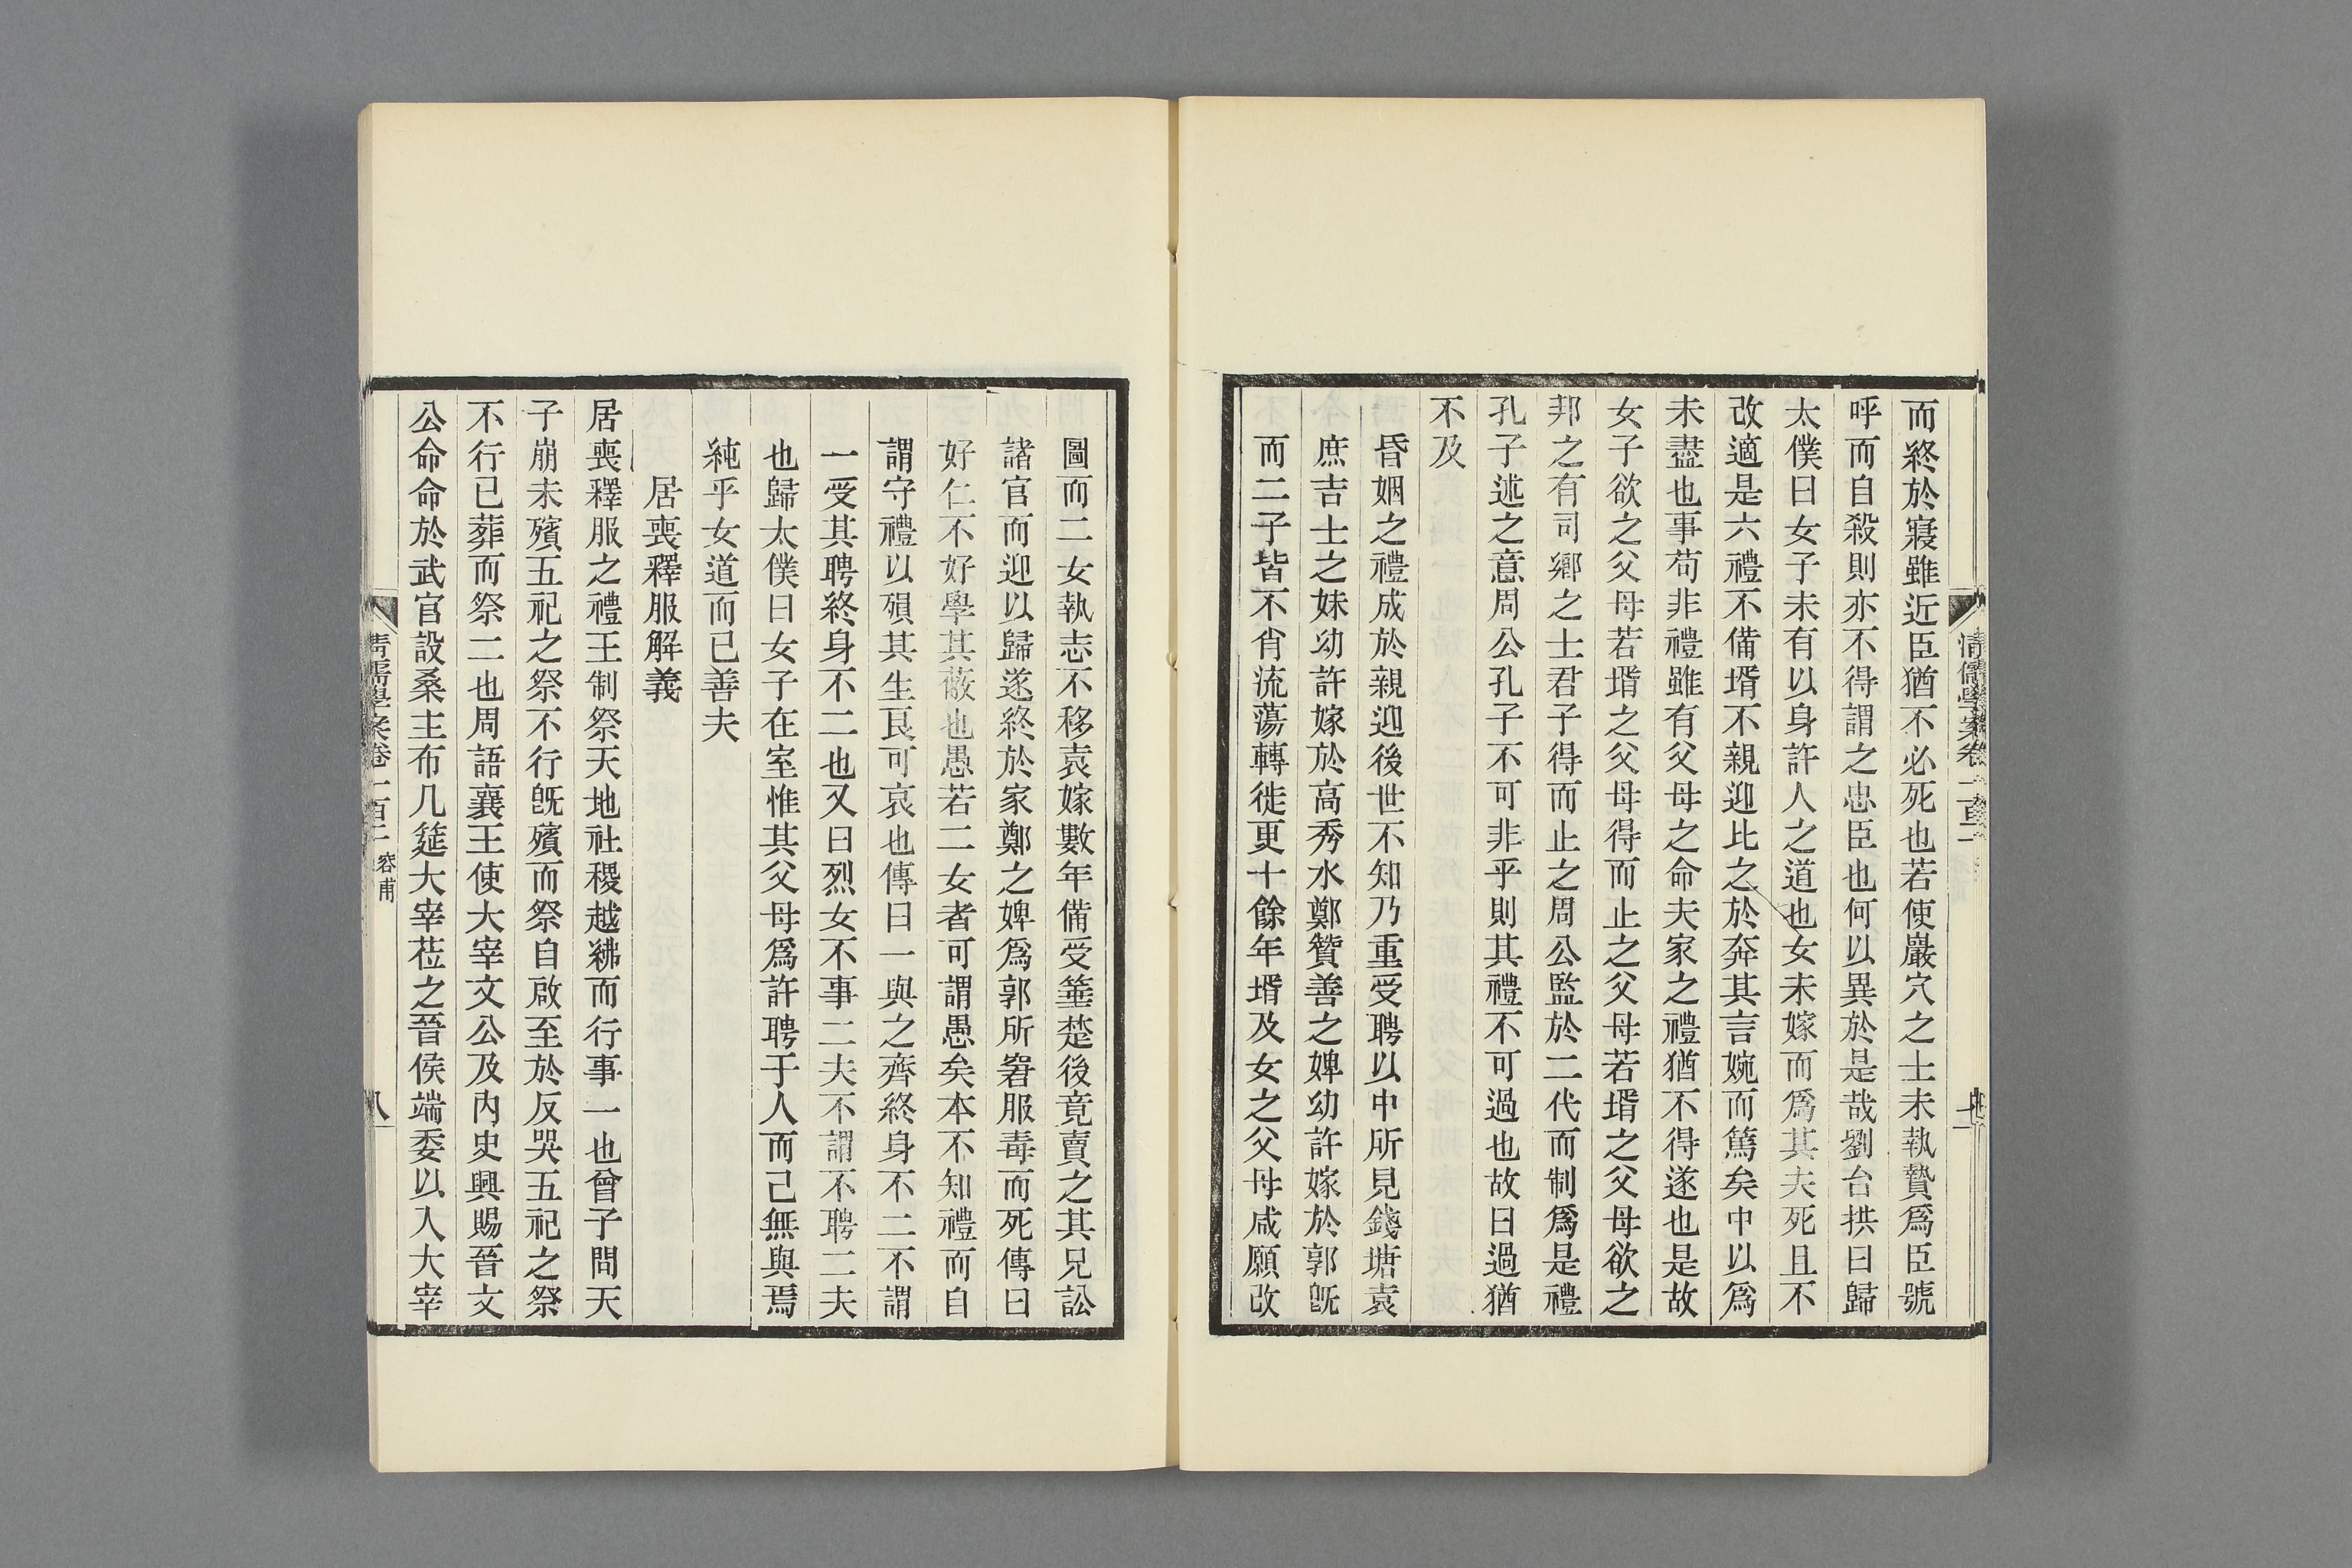 而終於寢雖近臣猶不必死也若使巖穴之士未執贄爲臣號
呼而自殺則亦不得謂之忠臣也何以異於是哉劉台拱曰歸
太僕曰女子未有以身許人之道也女未嫁而爲其夫死且不
改適是六禮不備壻不親迎比之於奔其言婉而篤矣中以爲
未盡也事苟非禮雖有父母之命夫家之禮猶不得遂也是故
女子欲之父母若壻之父母得而止之父母若壻之父母欲之
邦之有司鄉之士君子得而止之周公監於二代而制爲是禮
孔子述之意周公孔子不可非乎則其禮不可過也故曰過猶
不及
昏姻之禮成於親迎後世不知乃重受聘以中所見錢塘袁
庶吉士之妹幼許嫁於高秀水鄭贊善之婢幼許嫁於郭旣
而二子皆不肖流蕩轉徙更十餘年壻及女之父母咸願改
圖而二女執志不移袁嫁數年備受箠楚後竟賣之其兄訟
諸官而迎以歸遂終於家鄭之婢爲郭所窘服毒而死傳曰
好仁不好學其蔽也愚若二女者可謂愚矣本不知禮而自
謂守禮以殞其生良可哀也傳曰一與之齊終身不二不謂
一受其聘終身不二也又曰烈女不事二夫不謂不聘二夫
也歸太僕曰女子在室惟其父母爲許聘于人而己無與焉
純乎女道而已善夫
居喪釋服解義
居喪釋服之禮王制祭天地社稷越紼而行事一也曾子問天
子崩未殯五祀之祭不行旣殯而祭自啟至於反哭五祀之祭
不行已葬而祭二也周語襄王使大宰文公及內史興賜晉文
公命命於武官設桑主布几筵大宰莅之晉侯端委以入大宰
清儒學案卷一百二 容甫
八